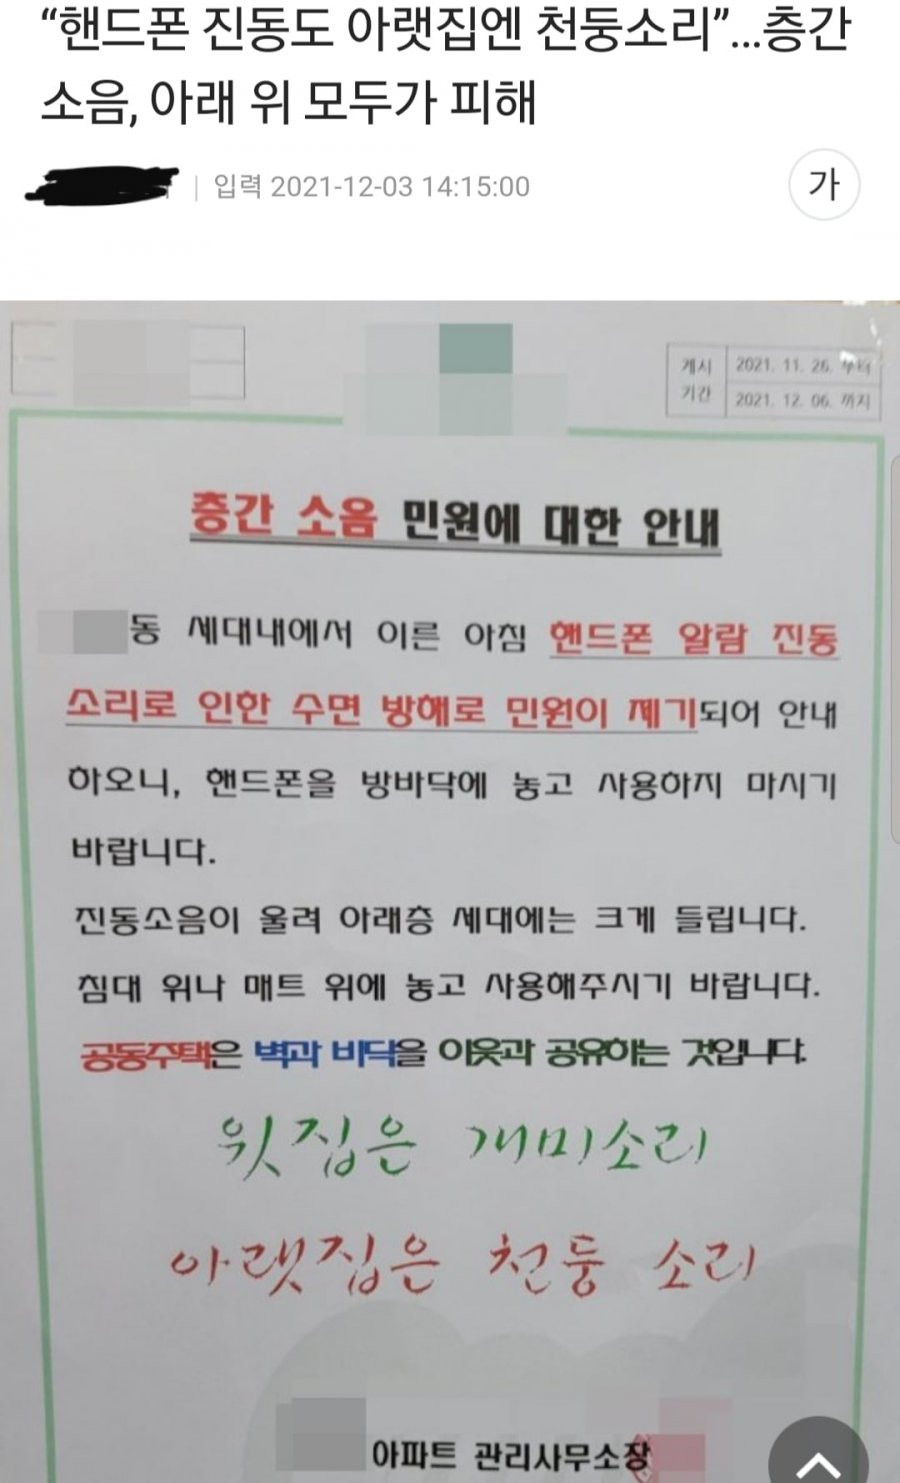 “핸드폰 진동도 아랫집엔 천둥소리”…층간
소음, 아래 위 모두가 피해
입력 2021-12-03 14:15:00
가
게시
기간
2021. 11. 26. 부터
2021. 12. 06. 까지
층간 소음 민원에 대한 안내
동 세대내에서 이른 아침 핸드폰 알람 진동
소리로 인한 수면 방해로 민원이 제기되어 안내
하오니, 핸드폰을 방바닥에 놓고 사용하지 마시기
바랍니다.
진동소음이 울려 아래층 세대에는 크게 들립니다.
침대 위나 매트 위에 놓고 사용해주시기 바랍니다.
공동주택은 벽과 바닥을 이웃과 공유하는 것입니다.
윗집은 개미소리
아랫집은 천둥 소리
아파트 관리사무소장